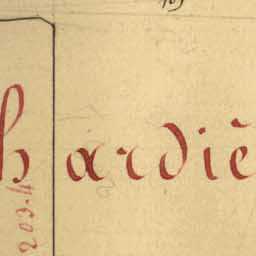 h ardiè
203.4